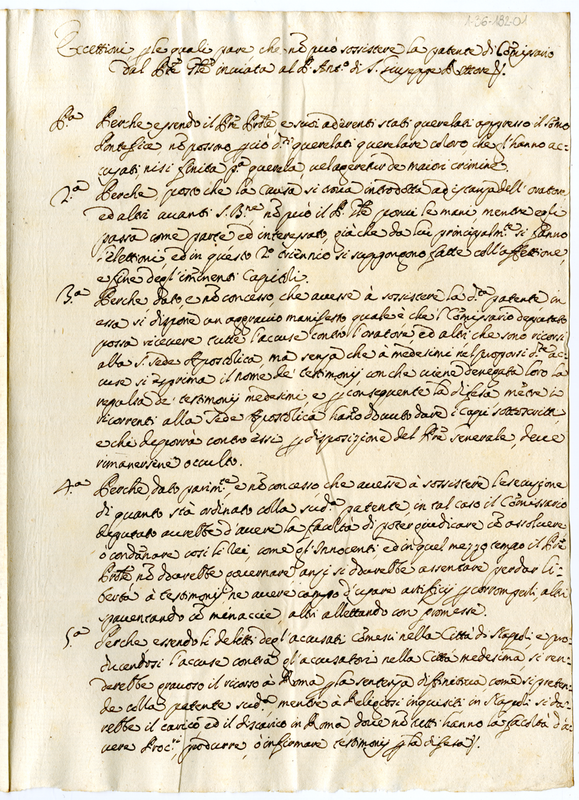 1-36-182-01
Eccettioni p le quali pare che nõ può sossistere la patente di Comissario
dal Pre Gñle inviata al P. Ant.o di S. Giuseppe
P.a Perche essendo il Pre Prõle e suoi aderenti stati querelati appresso il somo
Pontefice nõ possono, pciò d.ti querelati querelare coloro che l'hanno ac-
cusati nisi finita p.a querela, vel ageretur de maiori crimine.
2.a Perche posto che la causa si trova introdotta ad istanza dell'oratore
ed altri avanti S. B.ne nõ può il P. Gñle porvi le mani, mentre egli
passa come parte ed interessato, già che da lui principalm.te si fanno
l'Elettioni ed in questo 2.o triennio si suppongono fatte coll'affettione
e fine degl'iminenti Capitoli.
3.a Perche dato e nõ concesso, che avesse à sossistere la d.ta patente in
essa si dispone un aggravio manifesto quale è che il Comissario deputato
possa ricevere tutte l'accuse contro l'oratore ed altri che sono ricorsi
alla S. Sede Apostolica, ma senza che à medesimi nel proporsi d.te ac-
cuse si esprima il nome de' testimonij, con che viene denegata loro la
repulsa de' testimonij medesimi e p conseguente la difesa mẽtre i
ricorrenti alla Sede Apostolica hanno dovuto dare i Capi sottoscritti,
e che deporrà contro essi p dispositione del Pre Generale, deve
rimanersene occulto.
4.a Perche dato parim.te, e nõ concesso che avesse à sossistere l'esecusione
di quanto stà ordinato colla sud.a patente, in tal caso il Comissario
deputato avrebbe d'avere la facultà di poter giudicare cõ assolvere
o condanare così li Rei, come gl'Innocenti ed in quel mezzo tempo il Pre
Prõle nõ dovrebbe governare anzi si dovrebbe assentare per dar li-
bertà à testimonij, ne avere campo d'usare artificij p corrompergli, altri
spaventando cõ minaccie, altri allettando con promesse.
5.a Perche essendo li delitti degl'accusati comessi nella Città di Napoli, e pro-
ducendosi l'accuse contra gl'accusatori nella Città medesima si ren-
derebbe gravoso il ricorso à Roma p la sentenza difinitiva come si preten-
de colla patente sud.a mentre à Religiosi inquisiti in Napoli si da-
rebbe il carico ed il discarico in Roma dove nõ tutti hanno la facoltà d'a-
vere Proc.ri produrre, ò infirmare testimonij p la difesa